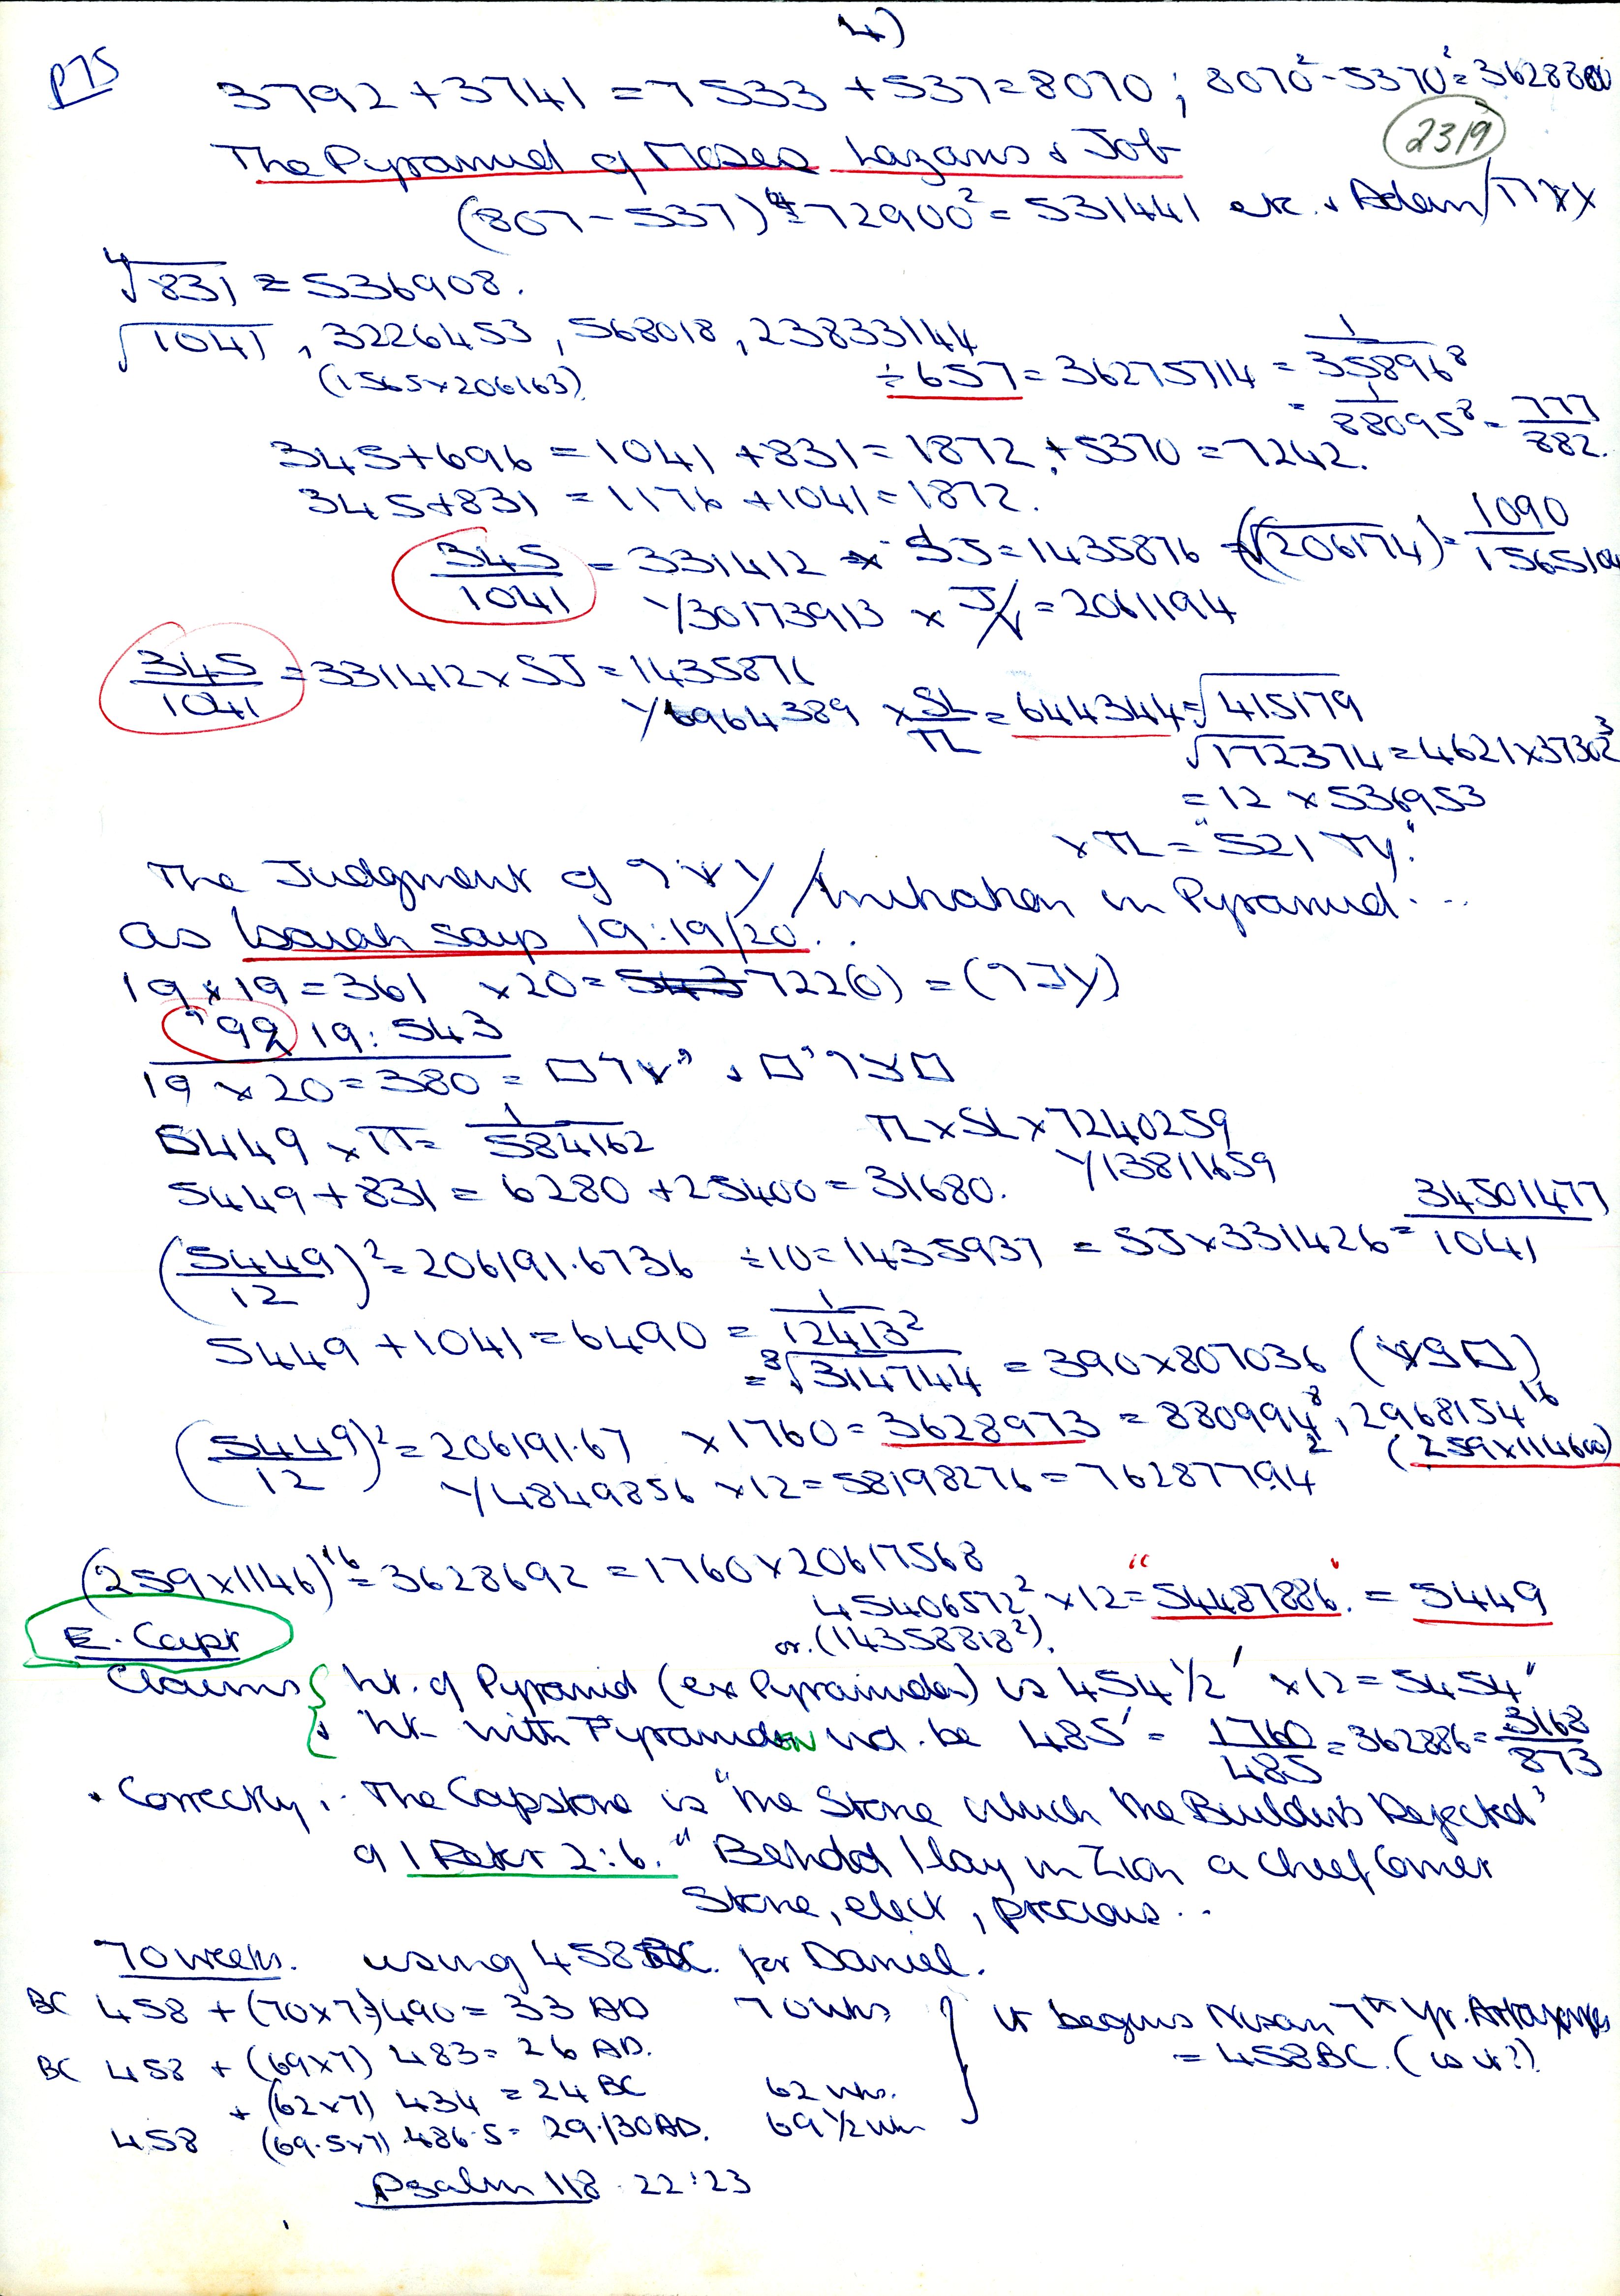 4)
P75
3792 + 3741 = 7533 + 537 = 8070 ; 8070² - 5370² = 362880
2319
The Pyramid of Moses Lazarus & Job
(807 - 537)⁴ = 72900² = 531441 etc. & Adam/
⁴√831 = 536908.
√1041, 3226453, 568018, 23833144
(1565 x 206163)
÷ 657 = 36275714 = 1/35896⁸
= 1/88095⁸ = 777/882.
345 + 696 = 1041 + 831 = 1872, + 5370 = 7242.
345 + 831 = 1176 + 1041 = 1872.
345/1041 = 331412 x SJ = 1435876 (√206174) = 1090/1565104
Y/30173913 x J/√ = 2061194
345/1041 = 331412 x SJ = 1435876
Y/6964389 x SL/TL = 644344 = √415179
√172374 = 4621 x 37302³
= 12 x 536953
x TL = "521 TY".
The Judgment of / Initiation in Pyramid...
as Isaiah says 19:19/20...
19 x 19 = 361 x 20 = 722(0) =
992 19: 543
19 x 20 = 380 =
5449 x π = 1/584162
TL x SL x 7240259
Y/13811659
5449 + 831 = 6280 + 25400 = 31680.
(5449/12)² = 206191.6736 ÷ 10 = 1435937 = SJ x 331426 = 34501477/1041
5449 + 1041 = 6490 = 1/12413²
= ⁸√314744 = 390 x 807036
(5449/12)² = 206191.67 x 1760 = 3628973 = 880994⁸, 2968154¹⁶
(259 x 114600)
Y/4849856 x 12 = 58198276 = 76287794²
(259 x 1146)¹⁶ = 3628692 = 1760 x 20617568
45406572² x 12 = "54487886". = 5449
or. (14358818²).
E. Capt
Claims { ht. of Pyramid (ex Pyramidon) is 454 1/2' x 12 = 5454"
& ht with Pyramidon wd. be 485' = 1760/485 = 362886 = 3168/873
. Correctly, .. The Capstone is "the Stone which the Builders Rejected"
of 1 Peter 2:6. "Behold I lay in Zion a chief Corner
Stone, elect, precious..
70 weeks. using 458 BC. for Daniel.
BC 458 + (70x7=) 490 = 33 AD 70 wks
BC 458 + (69x7) 483 = 26 AD.
+ (62x7) 434 = 24 BC 62 wks.
458 (69.5x7) .486.5 = 29./30 AD. 69 1/2 wks
} it begins Nisan 7th yr. Artaxerxes
= 458 BC. (is it?)
Psalm 118. 22:23